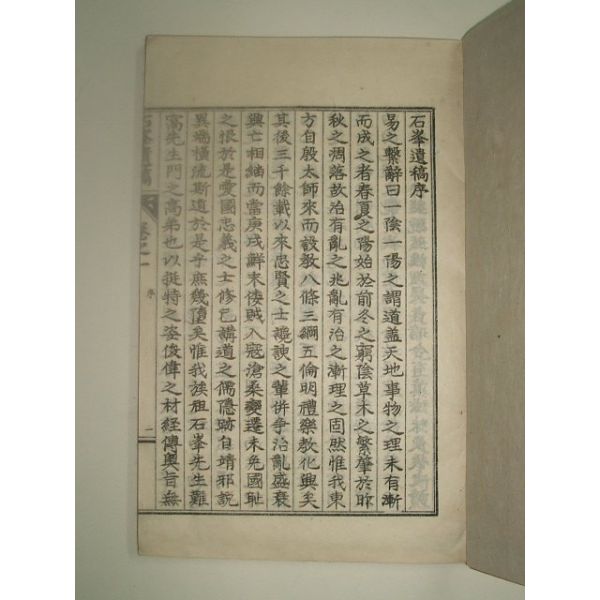 石峯遺稿序
易之繫辭曰一陰一陽之謂道盖天地事物之理未有漸
而成之者春夏之陽始於前冬之窮陰草木之繁肇於昨
秋之凋落故治有亂之兆亂有治之漸理之固然惟我東
方自殷太師來而設教八條三綱五倫明禮樂教化興矣
其後三千餘載以來忠賢之士諛之輩併爭治亂盛衰
興亡相緖而當庚戌鮮末倭賊入寇滄桑變遷未免國恥
之恨於是愛國忠義之士修己講道之儒隱跡自靖邪說
異端橫流斯道於是乎庶幾墮矣惟我族祖石峯先生難
窩先生門之高弟也以挺特之姿俊偉之材經傳奧旨無
石峯遺稿
卷之一
序
一